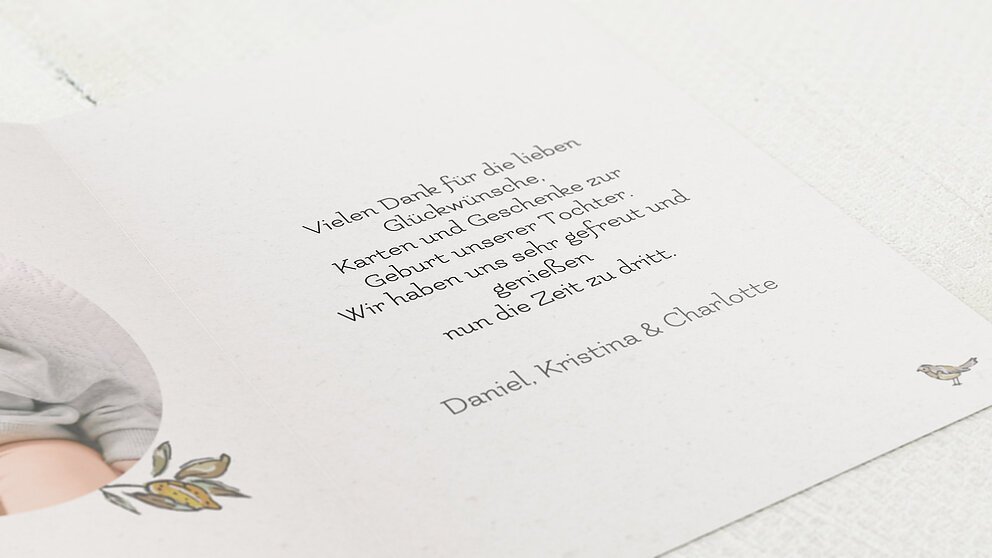 Vielen Dank für die lieben
Glückwünsche,
Karten und Geschenke zur
Geburt unserer Tochter.
Wir haben uns sehr gefreut und
genießen
nun die Zeit zu dritt.
Daniel, Kristina & Charlotte